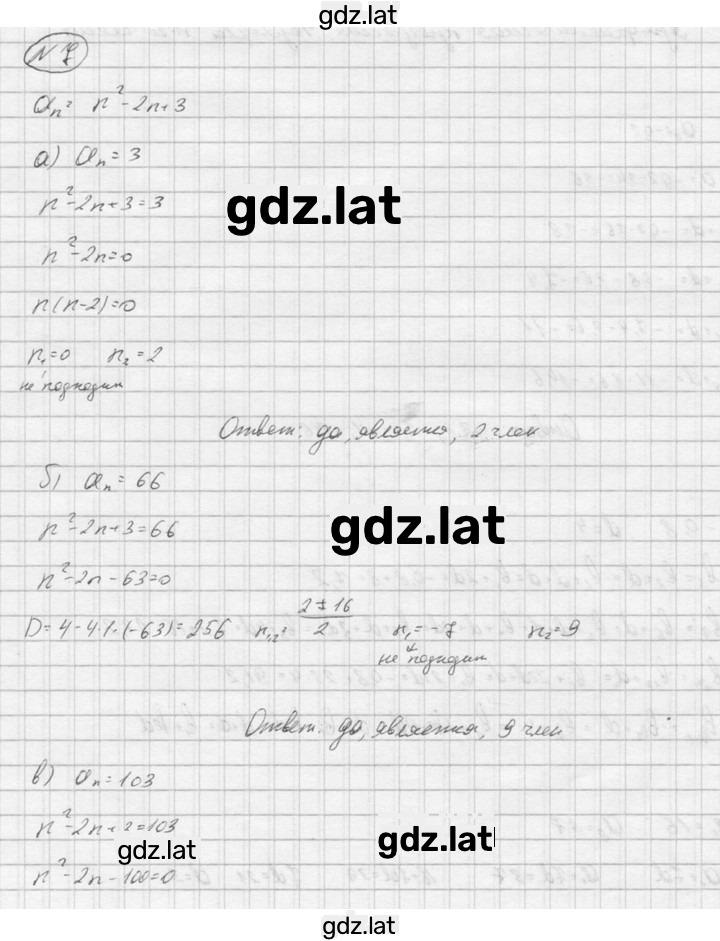 gdz.lat
N 7
aₙ = n² - 2n + 3
а) aₙ = 3
n² - 2n + 3 = 3
gdz.lat
n² - 2n = 0
n(n-2) = 0
n₁ = 0 n₂ = 2
не подходит
Ответ: да, является, 2 член
б) aₙ = 66
n² - 2n + 3 = 66
gdz.lat
n² - 2n - 63 = 0
D = 4 - 4·1·(-63) = 256 n₁,₂ = (2 ± 16)/2 n₁ = -7 n₂ = 9
не подходит
Ответ: да, является, 9 член
в) aₙ = 103
n² - 2n + 3 = 103
gdz.lat gdz.lat
n² - 2n - 100 = 0
gdz.lat